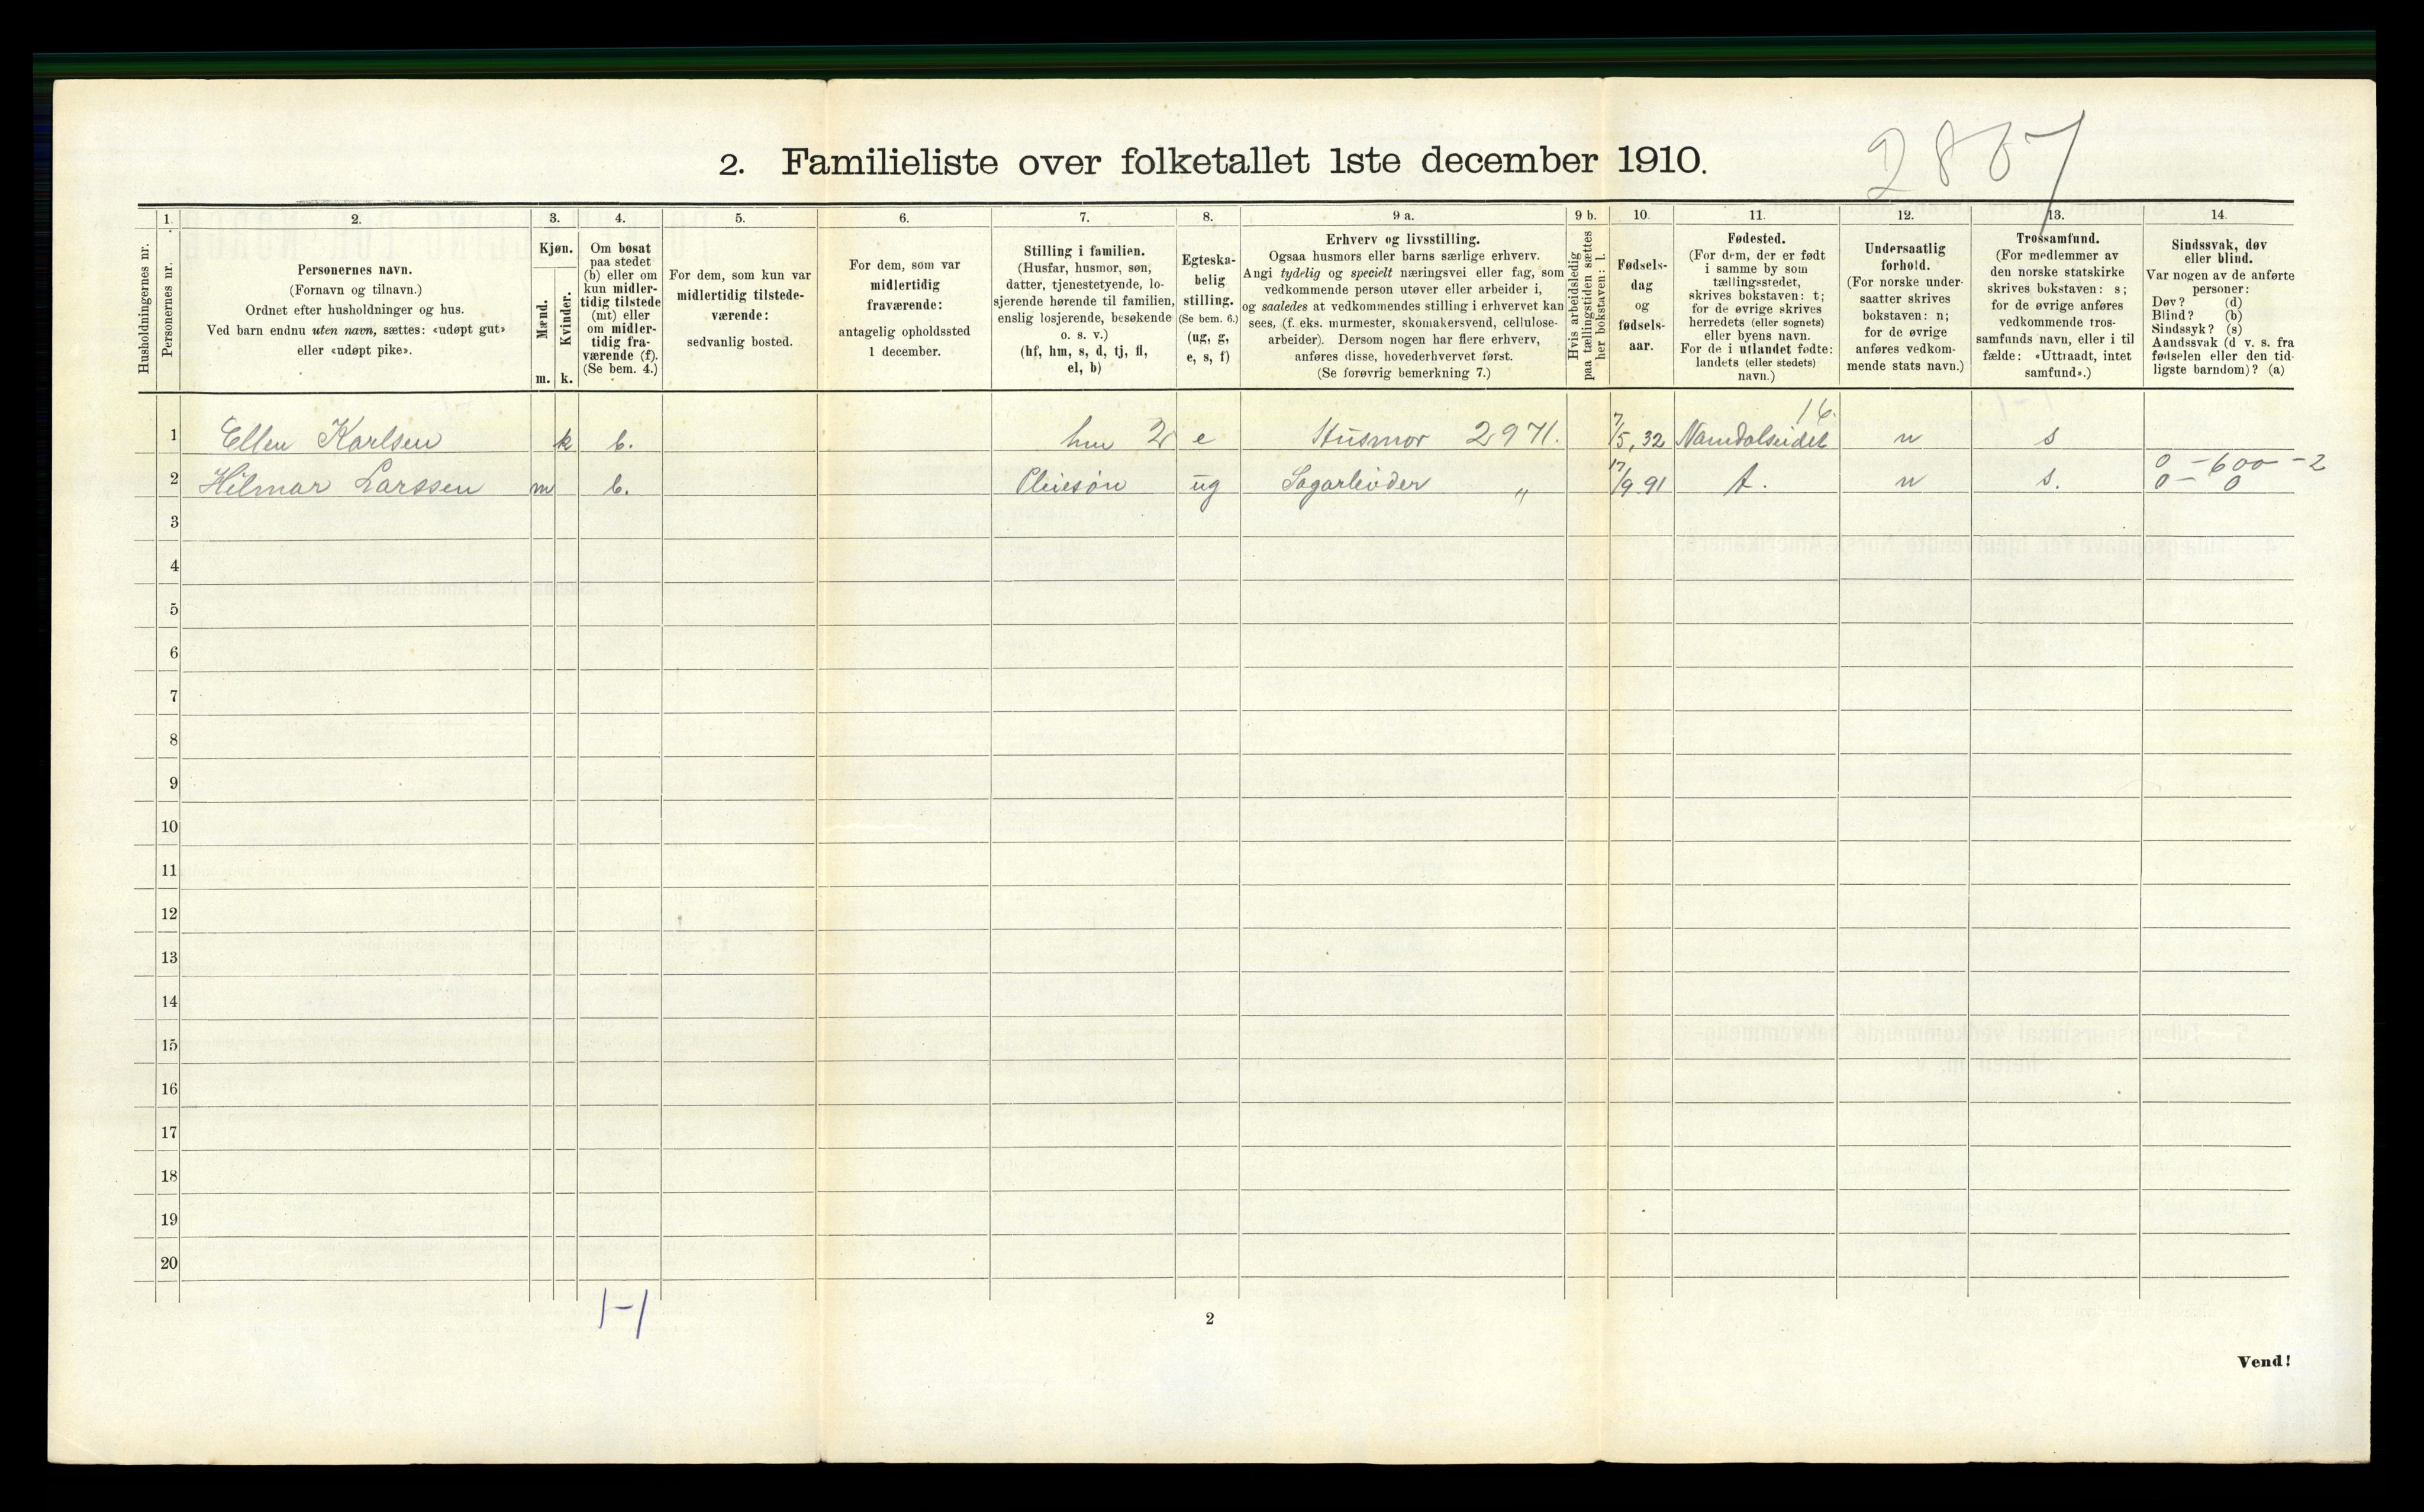 2867
2. Familieliste over folketallet 1ste december 1910.
Husholdningernes nr.
1.
Personernes nr.
2.
Personernes navn.
(Fornavn og tilnavn.)
Ordnet efter husholdninger og hus.
Ved barn endnu uten navn, sættes: «udøpt gut»
eller «udøpt pike».
3.
Kjøn.
Mænd.
Kvinder.
m. k.
4.
Om bosat
paa stedet
(b) eller om
kun midler-
tidig tilstede
(mt) eller
om midler-
tidig fra-
værende (f).
(Se bem. 4.)
5.
For dem, som kun var
midlertidig tilstede-
værende:
sedvanlig bosted.
6.
For dem, som var
midlertidig
fraværende:
antagelig opholdssted
1 december.
7.
Stilling i familien.
(Husfar, husmor, søn,
datter, tjenestetyende, lo-
sjerende hørende til familien,
enslig losjerende, besøkende
o. s. v.)
(hf, hm, s, d, tj, fl,
el, b)
8.
Egteska-
belig
stilling.
(Se bem. 6.)
(ug, g,
e, s, f)
9 a.
Erhverv og livsstilling.
Ogsaa husmors eller barns særlige erhverv.
Angi tydelig og specielt næringsvei eller fag, som
vedkommende person utøver eller arbeider i,
og saaledes at vedkommendes stilling i erhvervet kan
sees, (f. eks. murmester, skomakersvend, cellulose-
arbeider). Dersom nogen har flere erhverv,
anføres disse, hovederhvervet først.
(Se forøvrig bemerkning 7.)
9 b.
Hvis arbeidsledig
paa tællingstiden sættes
her bokstaven: l.
10.
Fødsels-
dag
og
fødsels-
aar.
11.
Fødested.
(For dem, der er født
i samme by som
tællingsstedet,
skrives bokstaven: t;
for de øvrige skrives
herredets (eller sognets)
eller byens navn.
For de i utlandet fødte:
landets (eller stedets)
navn.)
12.
Undersaatlig
forhold.
(For norske under-
saatter skrives
bokstaven: n;
for de øvrige
anføres vedkom-
mende stats navn.)
13.
Trossamfund.
(For medlemmer av
den norske statskirke
skrives bokstaven: s;
for de øvrige anføres
vedkommende tros-
samfunds navn, eller i til
fælde: «Uttraadt, intet
samfund».)
14.
Sindssvak, døv
eller blind.
Var nogen av de anførte
personer:
Døv? (d)
Blind? (b)
Sindssyk? (s)
Aandssvak (d v. s. fra
fødselen eller den tid-
ligste barndom)? (a)
16.
1 Ellen Karlsen k b. hm 2 e Husmor 2971. 7/5,32 Namdalseidet n s
0 - 600 - 2
2 Hilmar Larssen m b. Pleiesøn ug Sagarbeider „ 17/9 91 t. n s. 0 - 0
3
4
5
6
7
8
9
10
11
12
13
14
15
16
17
18
19
20
1-1
2
Vend!